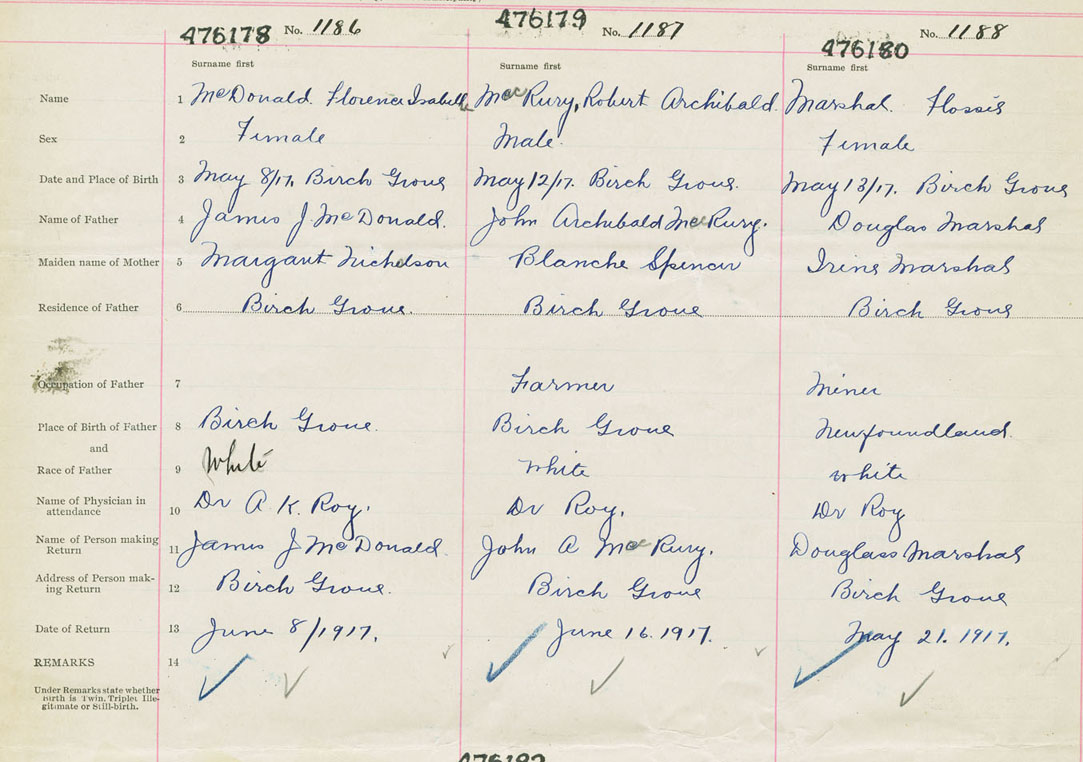 476178 No. 1186 476179 No. 1187 476180 No. 1188
Surname first Surname first Surname first
Name 1 McDonald. Florence Isabelle MacRury, Robert Archibald. Marshal. Flossie
Sex 2 Female Male. Female
Date and Place of Birth 3 May 8/17. Birch Grove May 12/17. Birch Grove. May 13/17. Birch Grove
Name of Father 4 James J McDonald. John Archibald MacRury. Douglas Marshal
Maiden name of Mother 5 Margaret Nicholson Blanche Spencer Irene Marshal
Residence of Father 6 Birch Grove. Birch Grove Birch Grove
Occupation of Father 7 Farmer Miner
Place of Birth of Father 8 Birch Grove. Birch Grove Newfoundland.
and
Race of Father 9 White White white
Name of Physician in
attendance 10 Dr A. K. Roy. Dr Roy. Dr Roy
Name of Person making
Return 11 James J McDonald. John A MacRury. Douglass Marshal
Address of Person mak-
ing Return 12 Birch Grove. Birch Grove Birch Grove
Date of Return 13 June 8/1917. June 16. 1917. May 21. 1917.
REMARKS 14
Under Remarks state whether
Birth is Twin, Triplet, Ille-
gitimate or Still-birth.